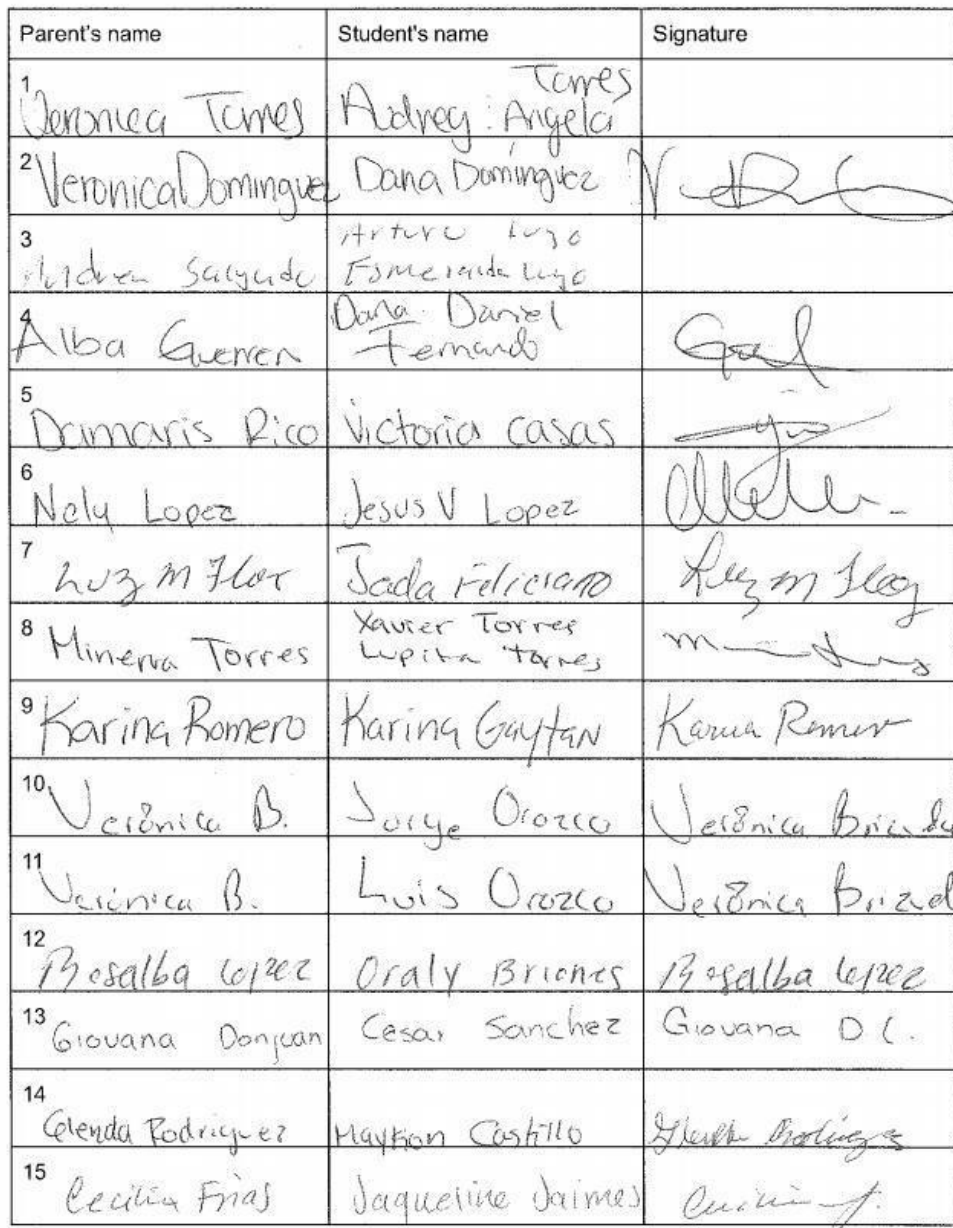 Parent's name Student's name Signature
1 Veronica Torres Audrey : Angela Torres
2 Veronica Dominguez Dana Dominguez
3 Andrea Salgado Arturo Lugo
Esmeralda Lugo
4 Alba Guerrero Dana. Daniel
Fernando
5 Damaris Rico Victoria Casas
6 Nely Lopez Jesus V Lopez
7 Luz M Flor Jada Feliciano Luz M
8 Minerva Torres Xavier Torres
Lupita Torres
9 Karina Romero Karina Gaytan Karina Romero
10 Verónica B. Jorge Orozco Verónica
11 Verónica B. Luis Orozco Verónica
12 Rosalba Lopez Oraly Briones Rosalba Lopez
13 Giovana Donjuan Cesar Sanchez Giovana D C.
14 Glenda Rodriguez Castillo Rodriguez
15 Cecilia Frias Jaqueline Jaimes